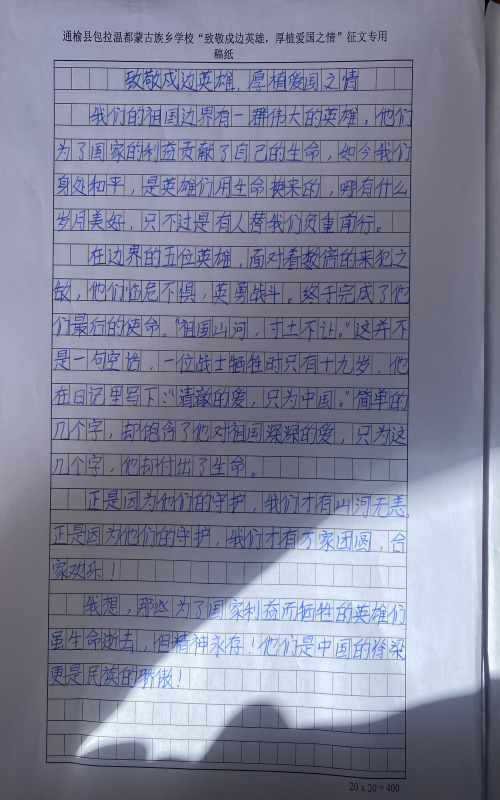 通榆县包拉温都蒙古族乡学校“致敬戍边英雄，厚植爱国之情”征文专用
稿纸
致敬戍边英雄，厚植爱国之情
我们的祖国边界有一群伟大的英雄，他们
为了国家的利益贡献了自己的生命，如今我们
身处和平，是英雄们用生命换来的，哪有什么
岁月美好，只不过是有人替我们负重前行。
在边界的五位英雄，面对着数倍的来犯之
敌，他们临危不惧，英勇战斗。终于完成了他
们最后的使命。“祖国山河，寸土不让。”这并不
是一句空话，一位战士牺牲时只有十九岁，他
在日记里写下：“清澈的爱，只为中国。”简单的
几个字，却饱含了他对祖国深深的爱，只为这
几个字，他却付出了生命。
正是因为他们的守护，我们才有山河无恙，
正是因为他们的守护，我们才有万家团圆，合
家欢乐！
我想，那些为了国家利益而牺牲的英雄们
虽生命逝去，但精神永存！他们是中国的脊梁
更是民族的骄傲！
20 x 20 = 400